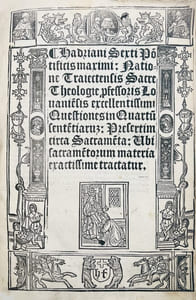 Hadriani Sexti Pō
tificis maximi: Natio
ne Traiectensis Sacre
Theologie, ꝓfessoris Lo
uaniēsis excellentissimi
Questiones in Quartū
sentētiarū: Presertim
circa Sacramēta: Ubi
sacramētorum materia
exactissime tractatur.